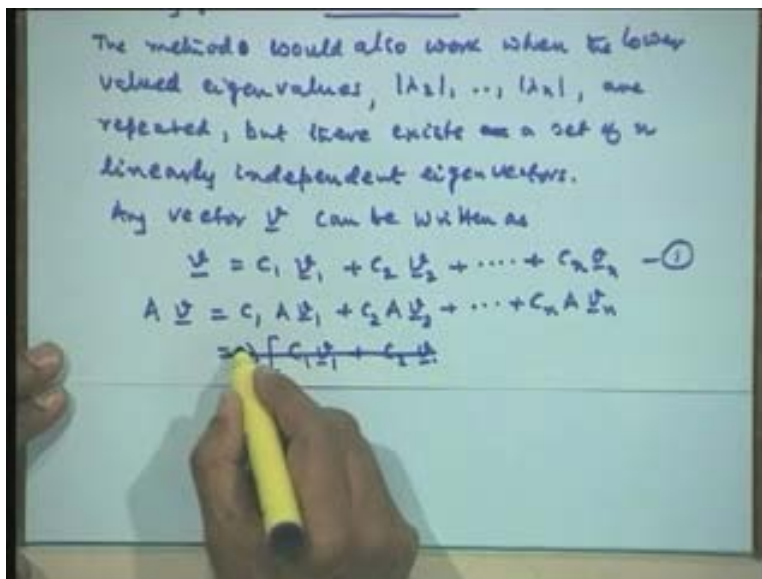 The methods would also work when the lower
valued eigenvalues, |λ₂|, .., |λn|, are
repeated, but there exists a set of n
linearly independent eigenvectors.
Any vector v can be written as
v = c₁ v₁ + c₂ v₂ + ···· + cn vn —①
A v = c₁ A v₁ + c₂ A v₂ + ··· + cn A vn
= λ [ c₁ v₁ + c₂ v